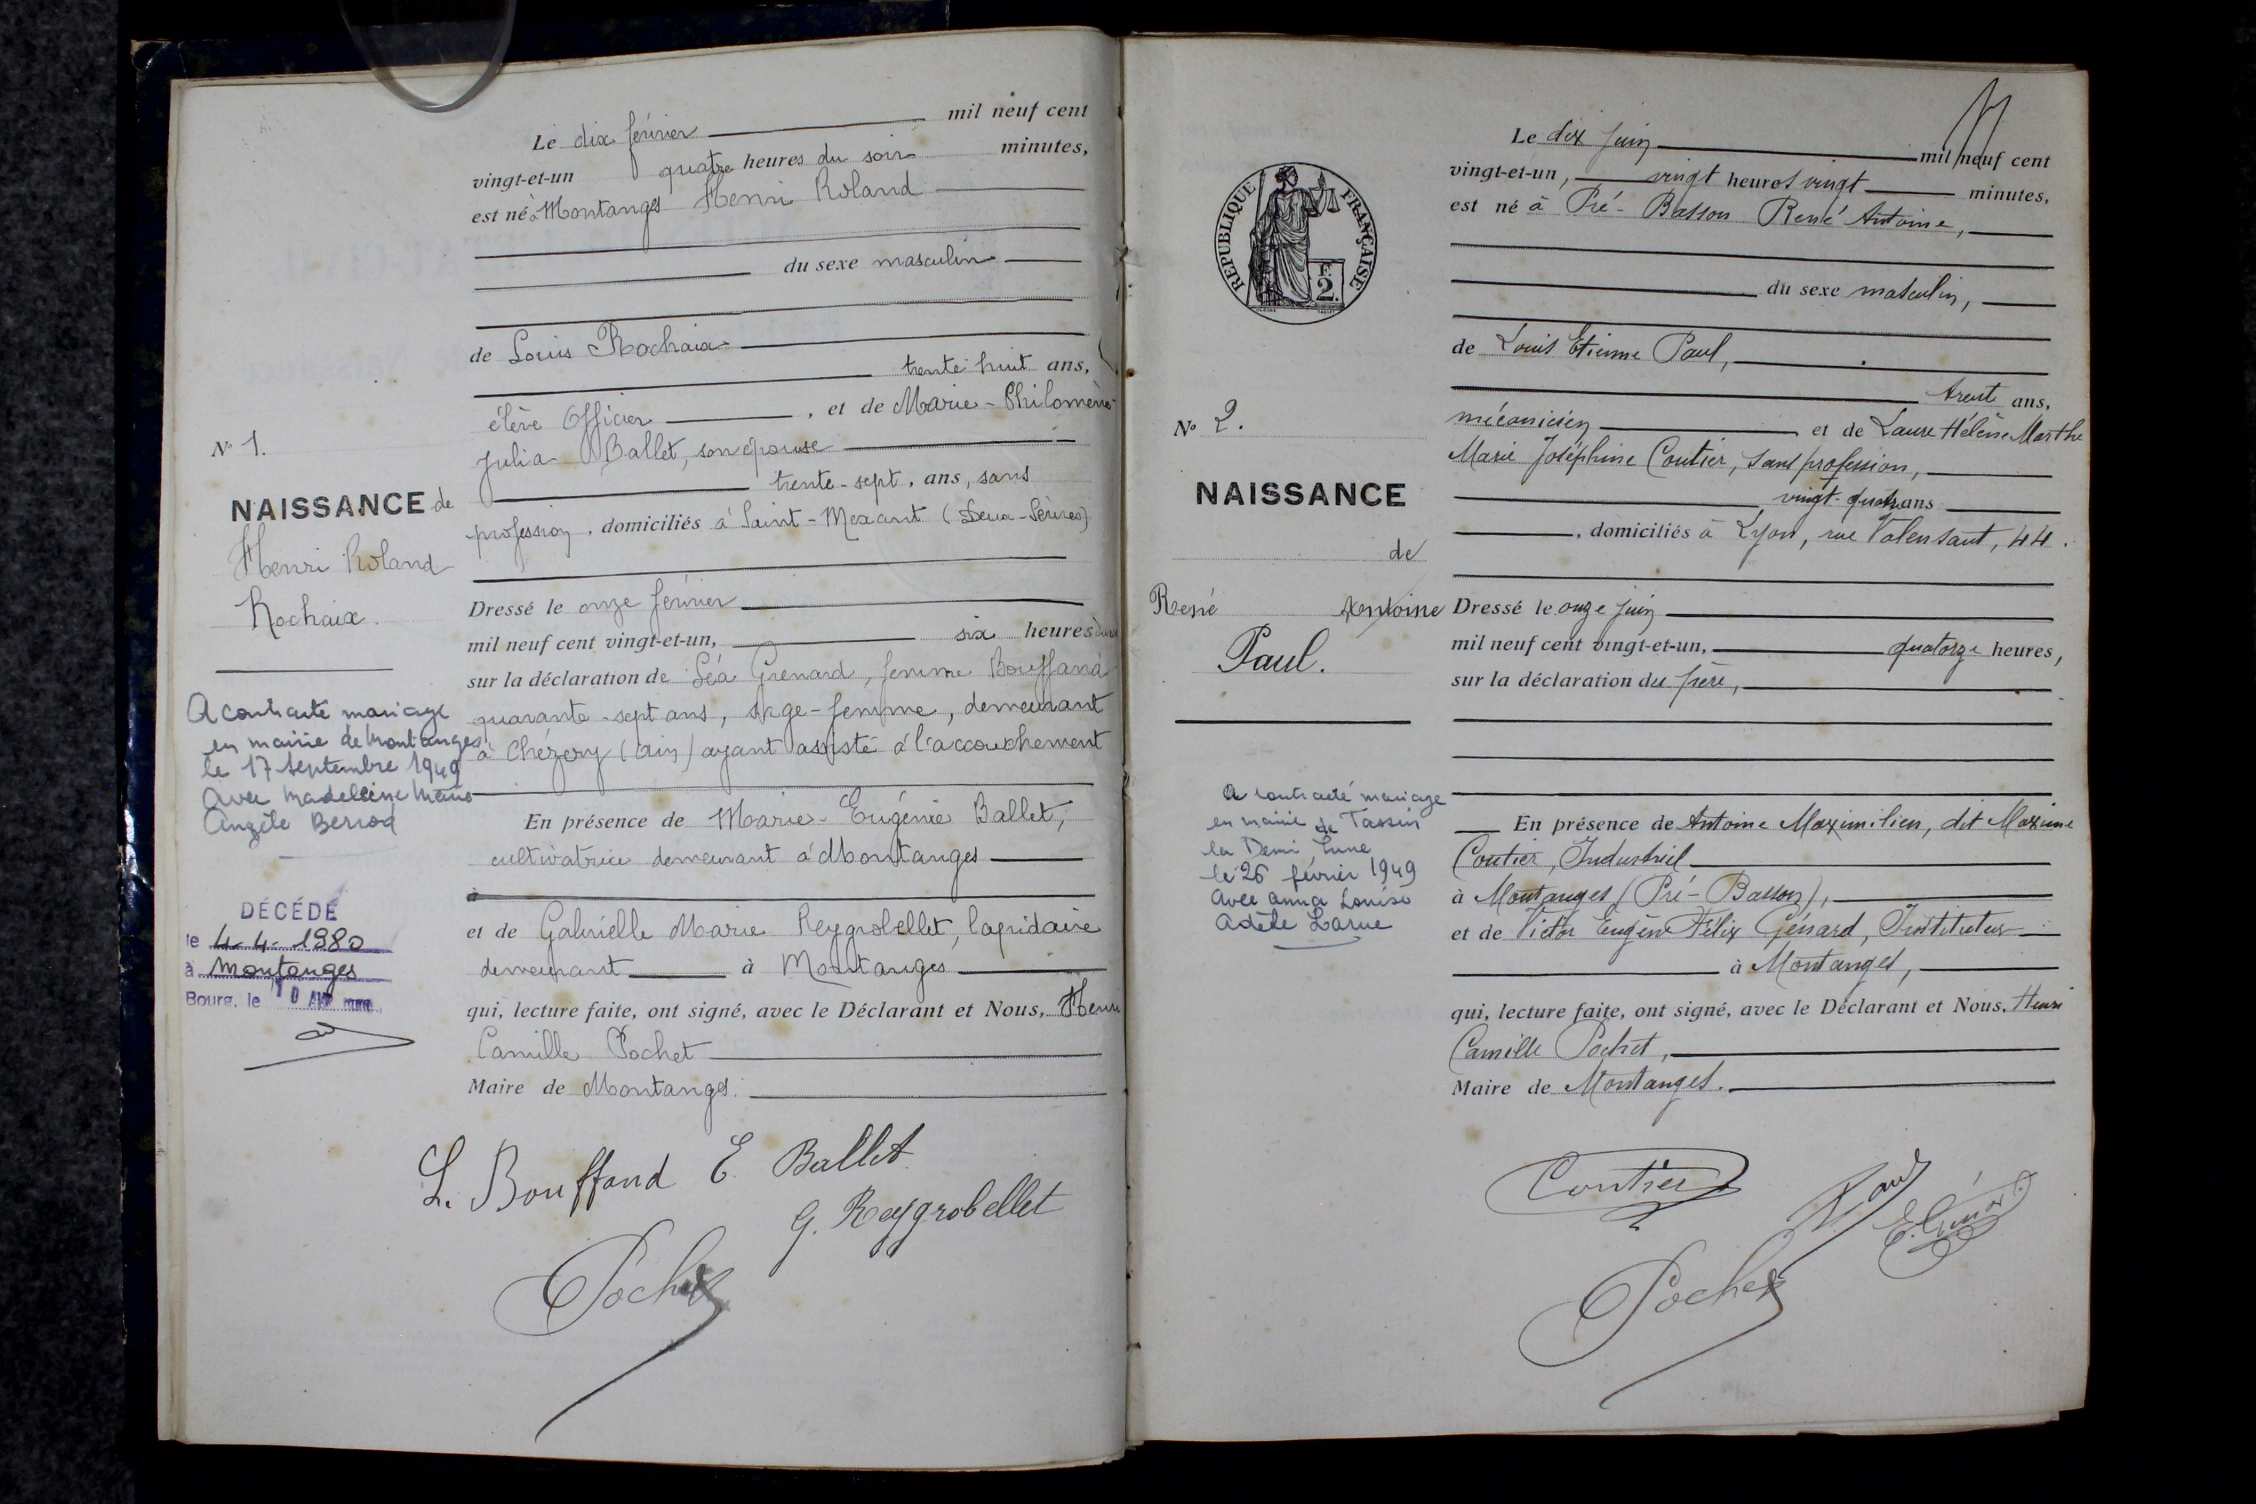 Le dix février mil neuf cent
vingt-et-un quatre heures du soir minutes,
est né à Montanges Henri Roland
du sexe masculin
de Louis Rochaix
trente huit ans,
élève Officier, et de Marie-Philomène
Julia Ballet, son épouse
trente-sept, ans, sans
profession, domiciliés à Saint-Mexant (Deux-Sèvres)
Dressé le onze février
mil neuf cent vingt-et-un, six heures
sur la déclaration de Léa Grenard, femme Bouffand
quarante-sept ans, sage-femme, demeurant
à Chézery (Ain) ayant assisté à l'accouchement
En présence de Marie-Eugénie Ballet,
cultivatrice demeurant à Montanges
à
et de Gabrielle Marie Reygrobellet, lapidaire
demeurant à Montanges
qui, lecture faite, ont signé, avec le Déclarant et Nous, Henri
Camille Pochet
Maire de Montanges.
L. Bouffand E Ballet
G. Reygrobellet
Pochet
No 1.
NAISSANCE de
Henri Roland
Rochaix.
A contracté mariage
en mairie de Montanges
le 17 septembre 1949
avec Madeleine
Angèle Berrod
DÉCÉDÉ
le 4-4-1980
à Montanges
Bourg, le
RÉPUBLIQUE FRANÇAISE
F.
2.
Le dix juin mil neuf cent
vingt-et-un, vingt heures vingt minutes,
est né à Pré-Basson René Antoine,
du sexe masculin,
de Louis Etienne Paul,
trente ans,
mécanicien et de Laure Hélène Marthe
Marie Joséphine Coutier, sans profession,
vingt-quatre ans
, domiciliés à Lyon, rue Valensaut, 44.
Dressé le onze juin
mil neuf cent vingt-et-un, quatorze heures,
sur la déclaration du père,
En présence de Antoine Maximilien, dit Maxime
Coutier, Industriel
à Montanges (Pré-Basson),
et de Victor Eugène Félix Génard, Instituteur
à Montanges,
qui, lecture faite, ont signé, avec le Déclarant et Nous, Henri
Camille Pochet,
Maire de Montanges.
Coutier
Paul
E. Génard
Pochet
No 2.
NAISSANCE
de
René Antoine
Paul.
A contracté mariage
en mairie de Tassin
la Demi Lune
le 26 février 1949
avec Anna Louise
Adèle Larue